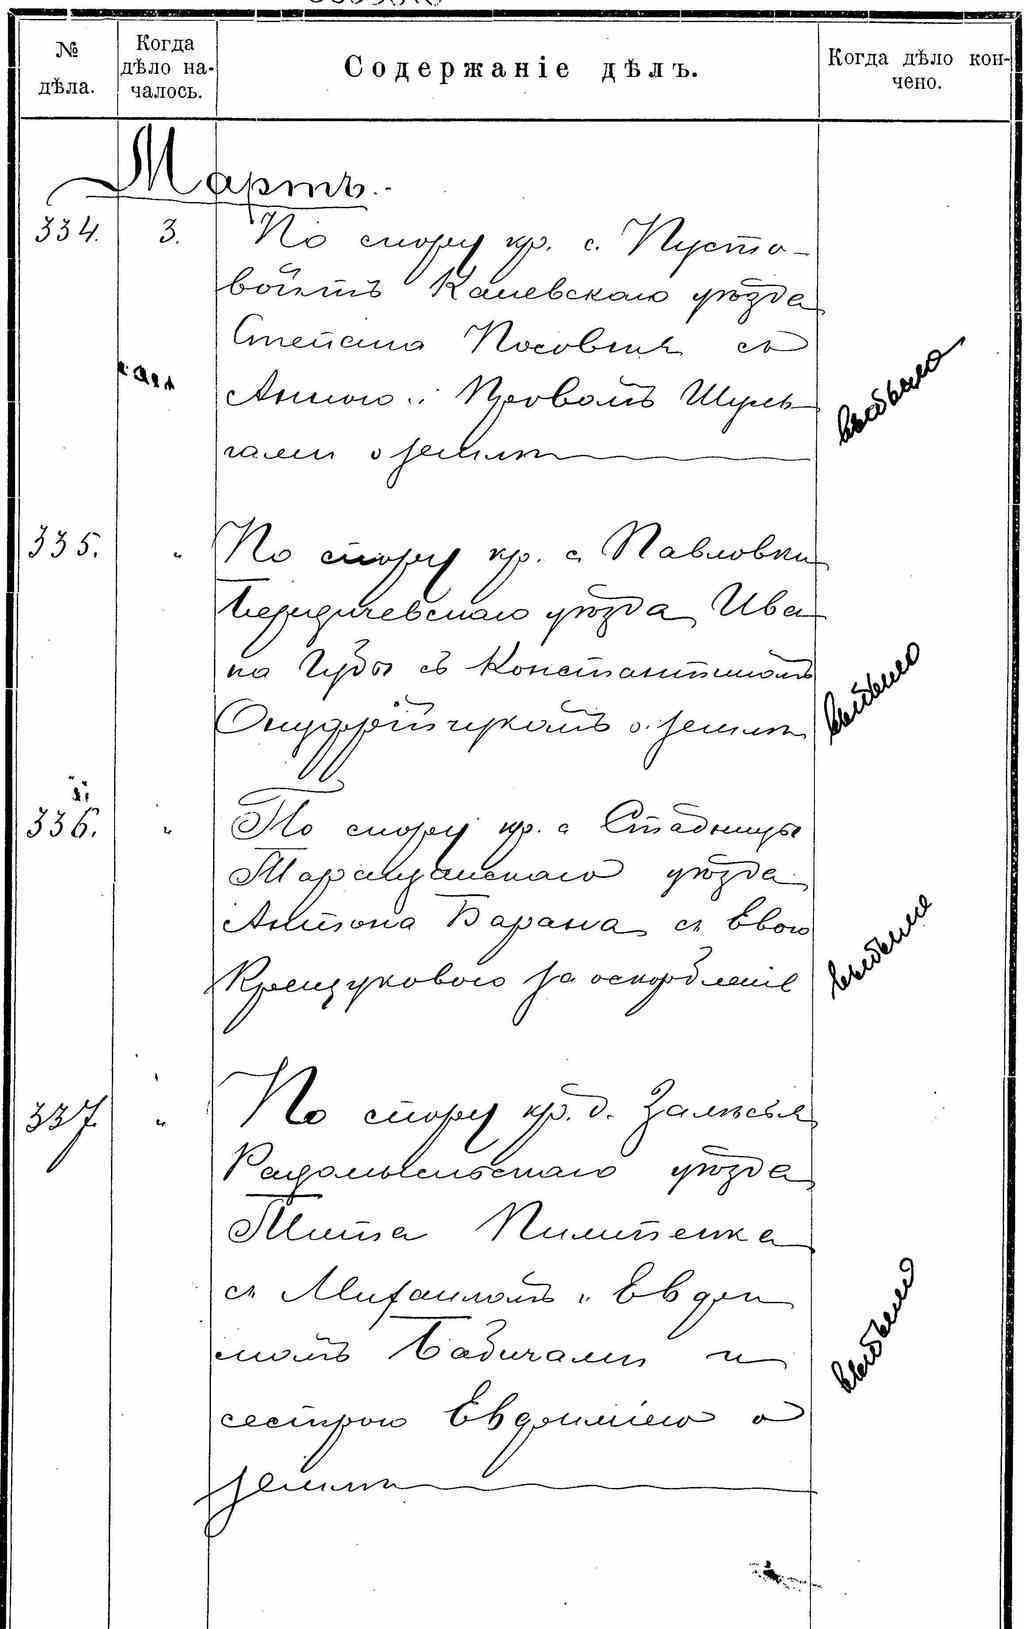 № дѣла.
Когда дѣло на-
чалось.
Содержаніе дѣлъ.
Когда дѣло кон-
чено.
Мартъ.
334.
3.
По спору кр. с. Пусто-
войтъ Каневскаго уѣзда
Степана Посовня съ
Анною и Провомъ Шуль-
гами о землѣ
выбыло
335.
"
По спору кр. с. Павловки
Бердичевскаго уѣзда Ива
на Губы съ Константиномъ
Онуфрійчукомъ о землѣ
выбыло
336.
"
По спору кр. с. Стадницы
Таращанскаго уѣзда
Антона Барана съ Евою
Крещуковою за оскорбленіе
выбыло
337.
"
По спору кр. д. Залѣсья
Радомысльскаго уѣзда
Тита Пилипенка
съ Михаиломъ и Евдоки
момъ Бабичами и
сестрою Евдокіею о
землѣ
выбыло